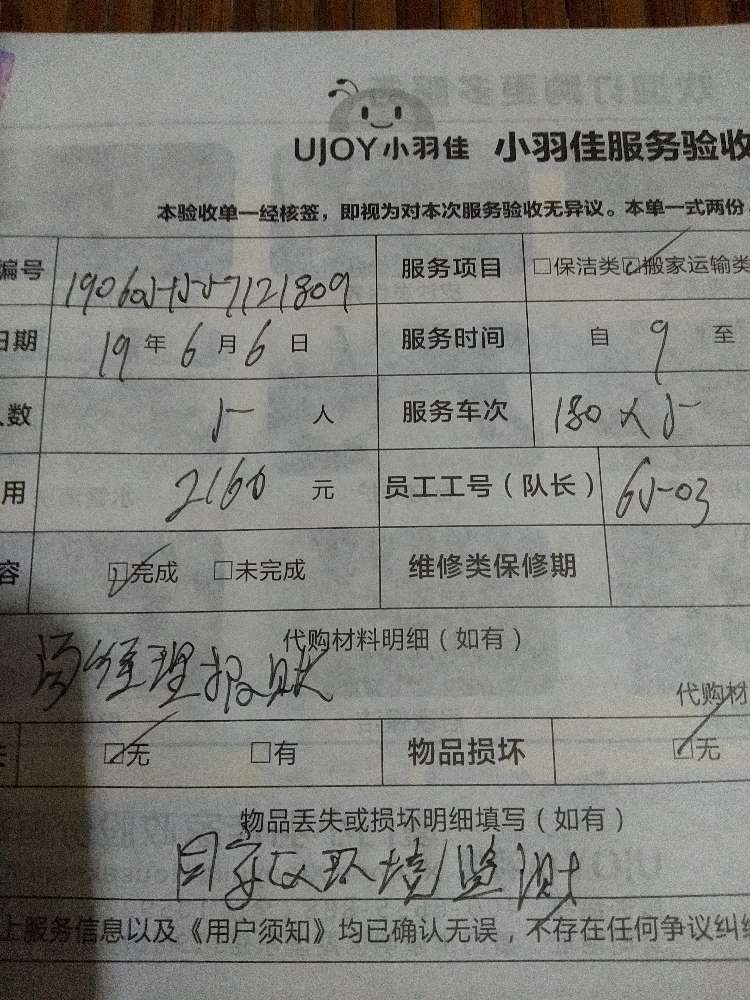 UJOY小羽佳 小羽佳服务验收
本验收单一经核签，即视为对本次服务验收无异议。本单一式两份
编号 服务项目 □保洁类 ☑搬家运输类
日期 19年6月6日 服务时间 自 9 至
人数 5 人 服务车次 180×5
用 2160 元 员工工号（队长） 65-03
容 ☑完成 □未完成 维修类保修期
代购材料明细（如有）
经理报账
代购材
☑无 □有 物品损坏 ☑无
物品丢失或损坏明细填写（如有）
环境监测
上服务信息以及《用户须知》均已确认无误，不存在任何争议纠纷